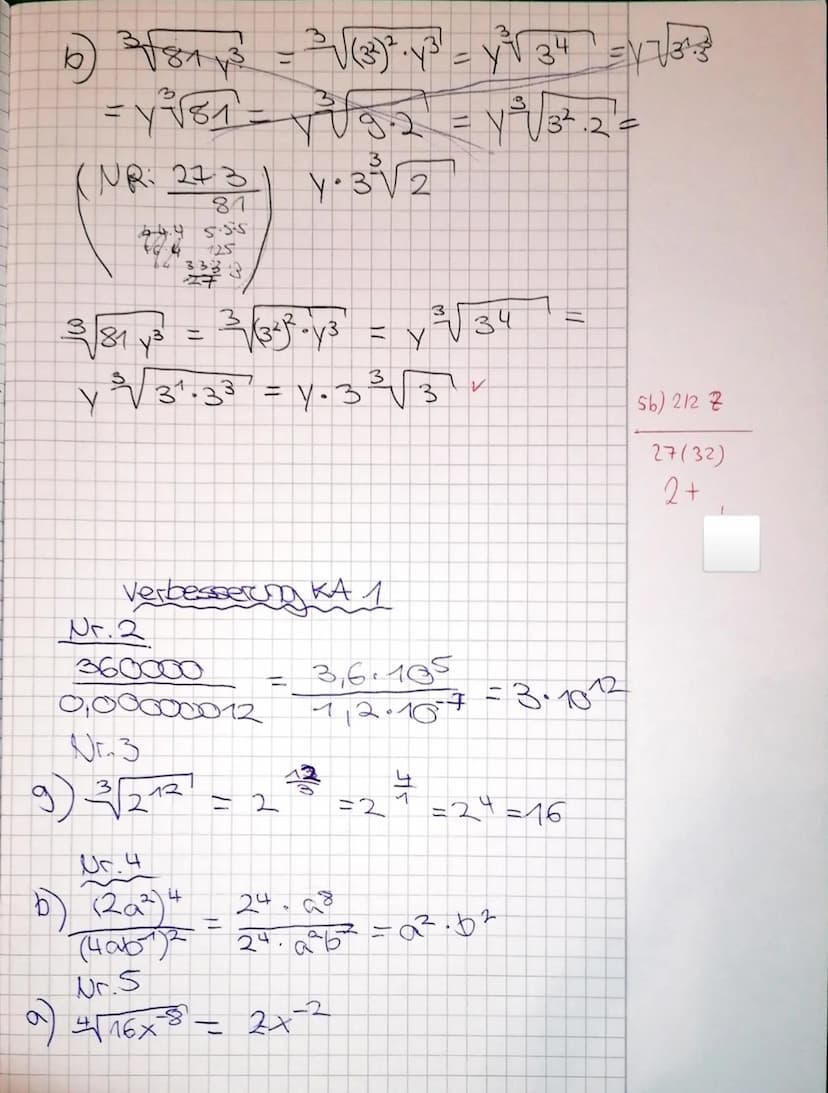 b) ∛(81 y³) = ∛((3²)² · y³) = y ∛(3⁴) = y √(3¹·3³)
= y ∛81 = y ∛(9·2) = y ∛(3²·2) =
(NR: 27·3 y · 3 ∛2
81
4·4·4 5·5·5
125
3·3·3·3
27)
∛(81 y³) = ∛((3²)² · y³) = y ∛(3⁴) =
y ∛(3¹·3³) = y · 3 ∛3 ✓
5b) 2/2
27(32)
2+
Verbesserung KA 1
Nr. 2
360000 / 0,00000012 = 3,6·10⁵ / 1,2·10⁻⁷ = 3·10¹²
Nr. 3
g) ∛(2¹²) = 2^(12/3) = 2^(4/1) = 2⁴ = 16
Nr. 4
b) (2a²)⁴ / (4ab⁻¹)² = 2⁴ · a⁸ / 2⁴ · a²b⁻² = a² · b²
Nr. 5
a) ∜(16x⁻⁸) = 2x⁻²